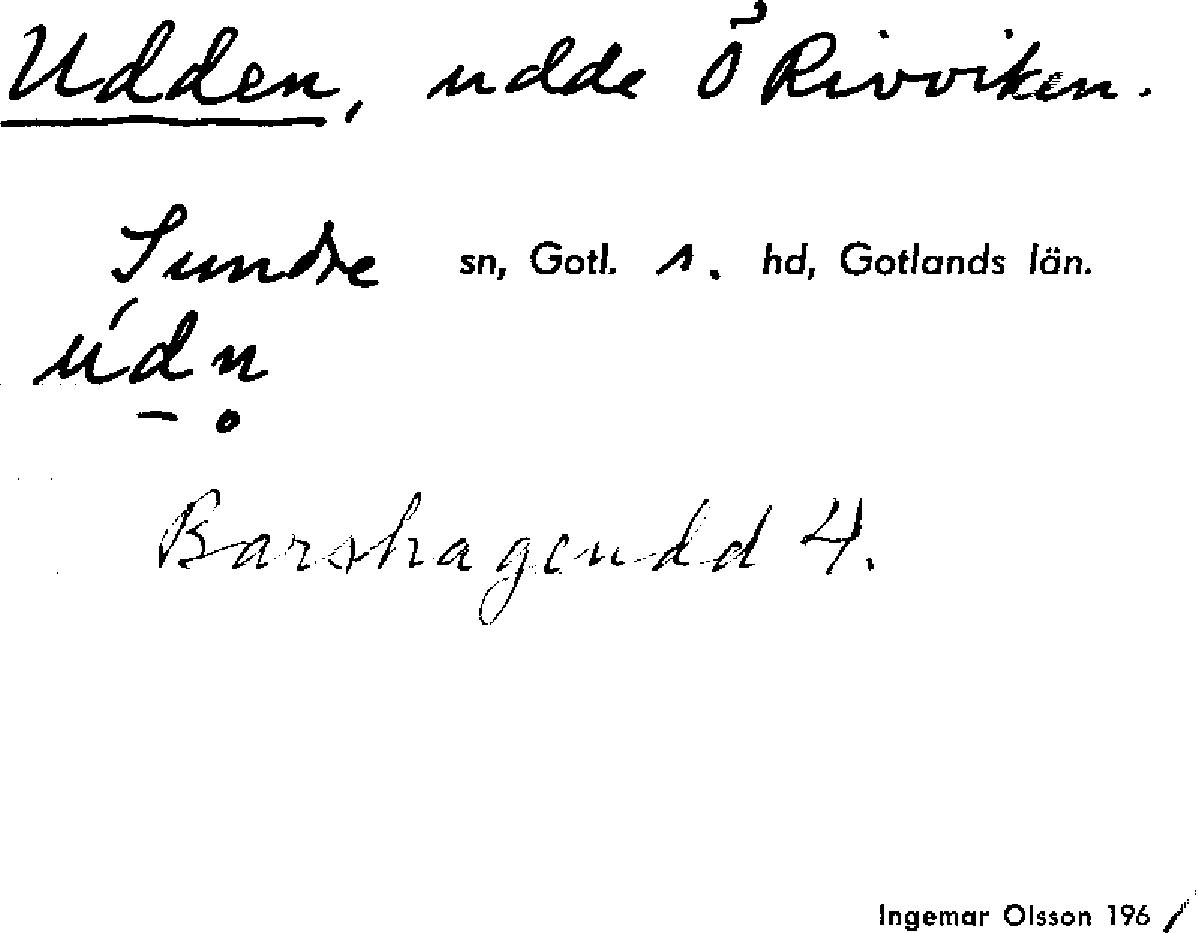 Udden, udde Ö Rivviken.
Sundre sn, Gotl. s. hd, Gotlands län.
u´d̠n̥
Barshageudd 4.
Ingemar Olsson 1961